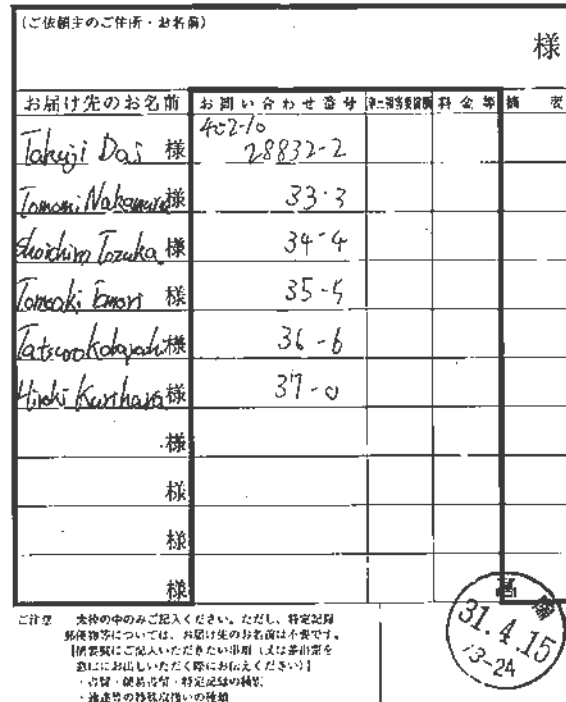 (ご依頼主のご住所・お名前)
様
お届け先のお名前 お問い合わせ番号 料金等 摘要
402-10
Takuji Doi 様 28832-2
Tomomi Nakamura 様 33-3
Shoichiro Tozuka 様 34-4
Tomoaki 様 35-5
様 36-6
Hiroki Kurihara 様 37-0
様
様
様
様
ご注意 太枠の中のみご記入ください。ただし、特定記録
郵便物等については、お届け先のお名前は不要です。
【摘要欄にご記入いただきたい事項(又は差出票を
窓口にお出しいただく際にお伝えください)】
・書留・簡易書留・特定記録の種別
・速達等の特殊取扱いの種類
31.4.15
13-24